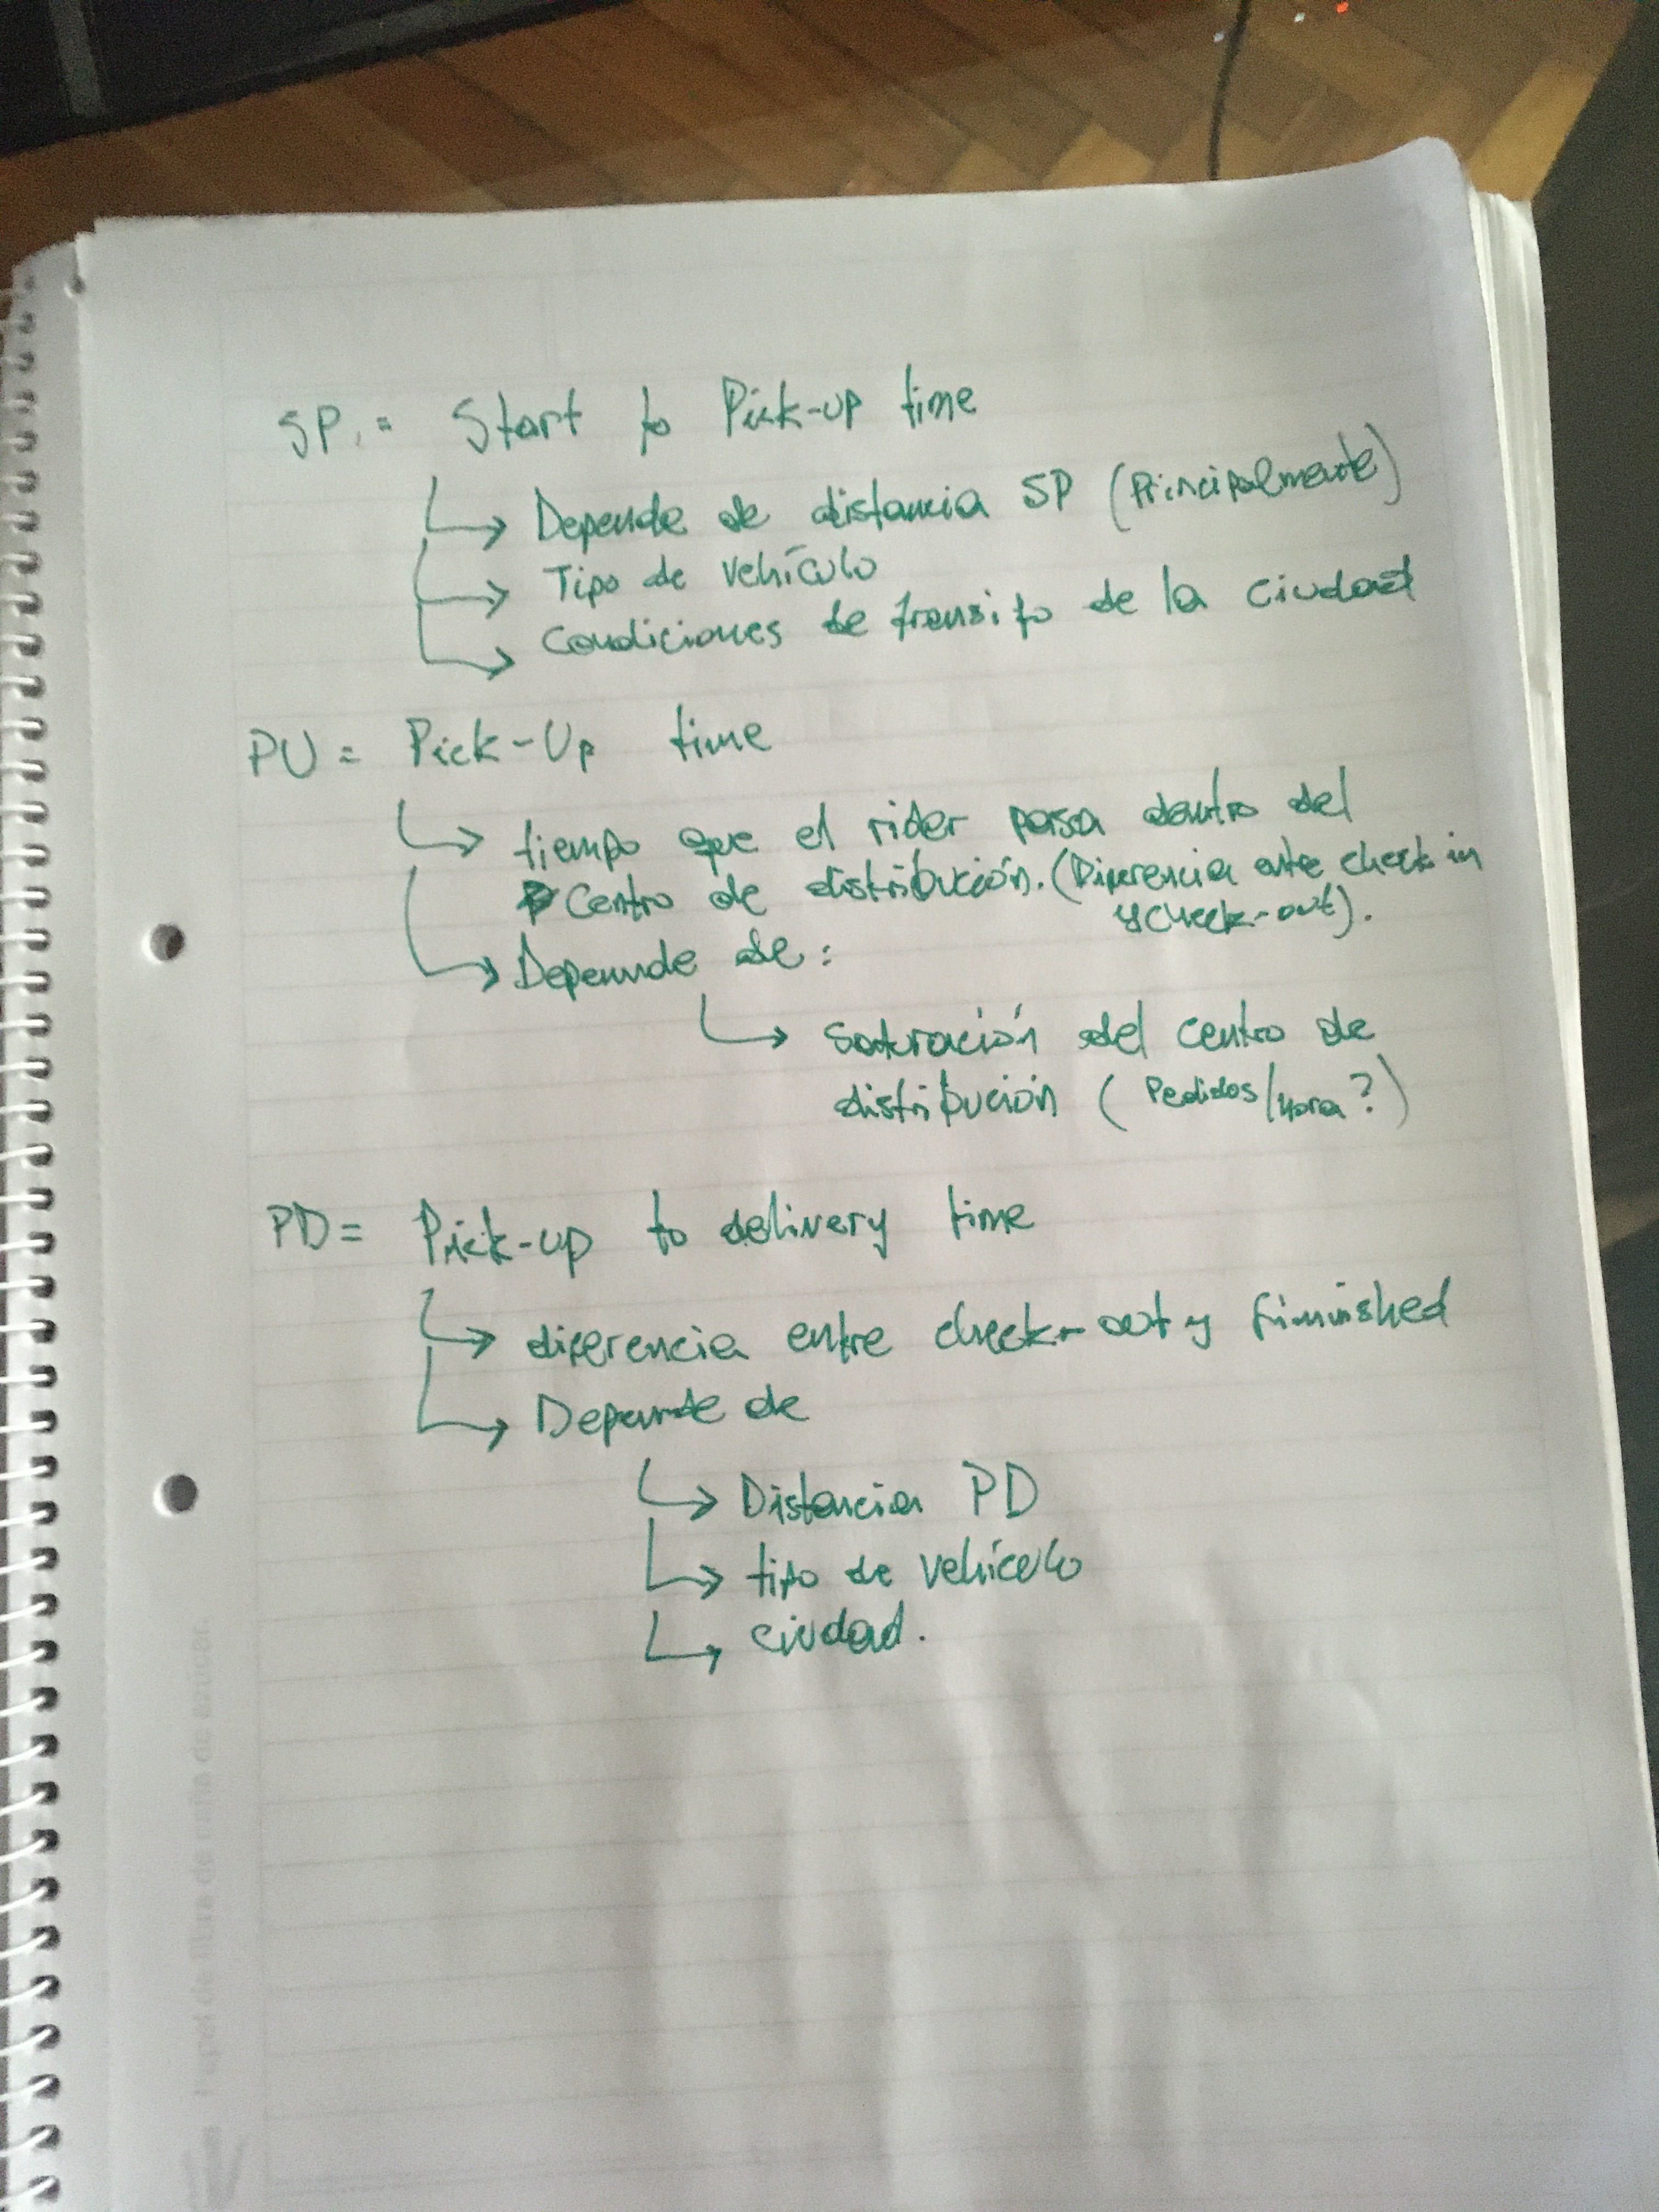 SP. = Start to Pick-up time
Depende de distancia SP (Principalmente)
Tipo de vehículo
Condiciones de transito de la ciudad
PU = Pick-Up time
tiempo que el rider pasa dentro del
Centro de distribución. (Diferencia entre check in
y check-out).
Depende de:
saturación del centro de
distribución ( Pedidos/Hora ?)
PD = Pick-up to delivery time
diferencia entre check-out y finished
Depende de
Distancia PD
tipo de vehículo
ciudad.